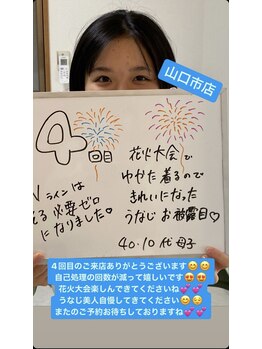 山口市店
4
回目
Vラインは
る必要ゼロ
になりました♡
花火大会で
ゆかた着るので
きれいになった
うなじお披露目♡
40.10代母子
4回目のご来店ありがとうございます😊😊
自己処理の回数が減って嬉しいです😍😍
花火大会楽しんできてくださいね💕💕
うなじ美人自慢してきてください😊😏
またのご予約お待ちしておりますね💕💕